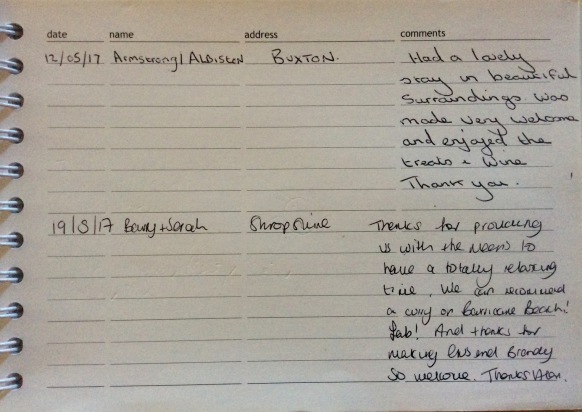 date name address comments
12/05/17 Armstrong / Aldisken Buxton. Had a lovely
stay in beautiful
Surroundings was
made very welcome
and enjoyed the
treats + Wine
Thank you.
19/5/17 + Sarah Shropshire Thanks for providing
us with the means to
have a totally relaxing
time, We can recommend
a curry on Barricane Beach!
Fab! And thanks for
making and Brandy
So welcome. Thanks